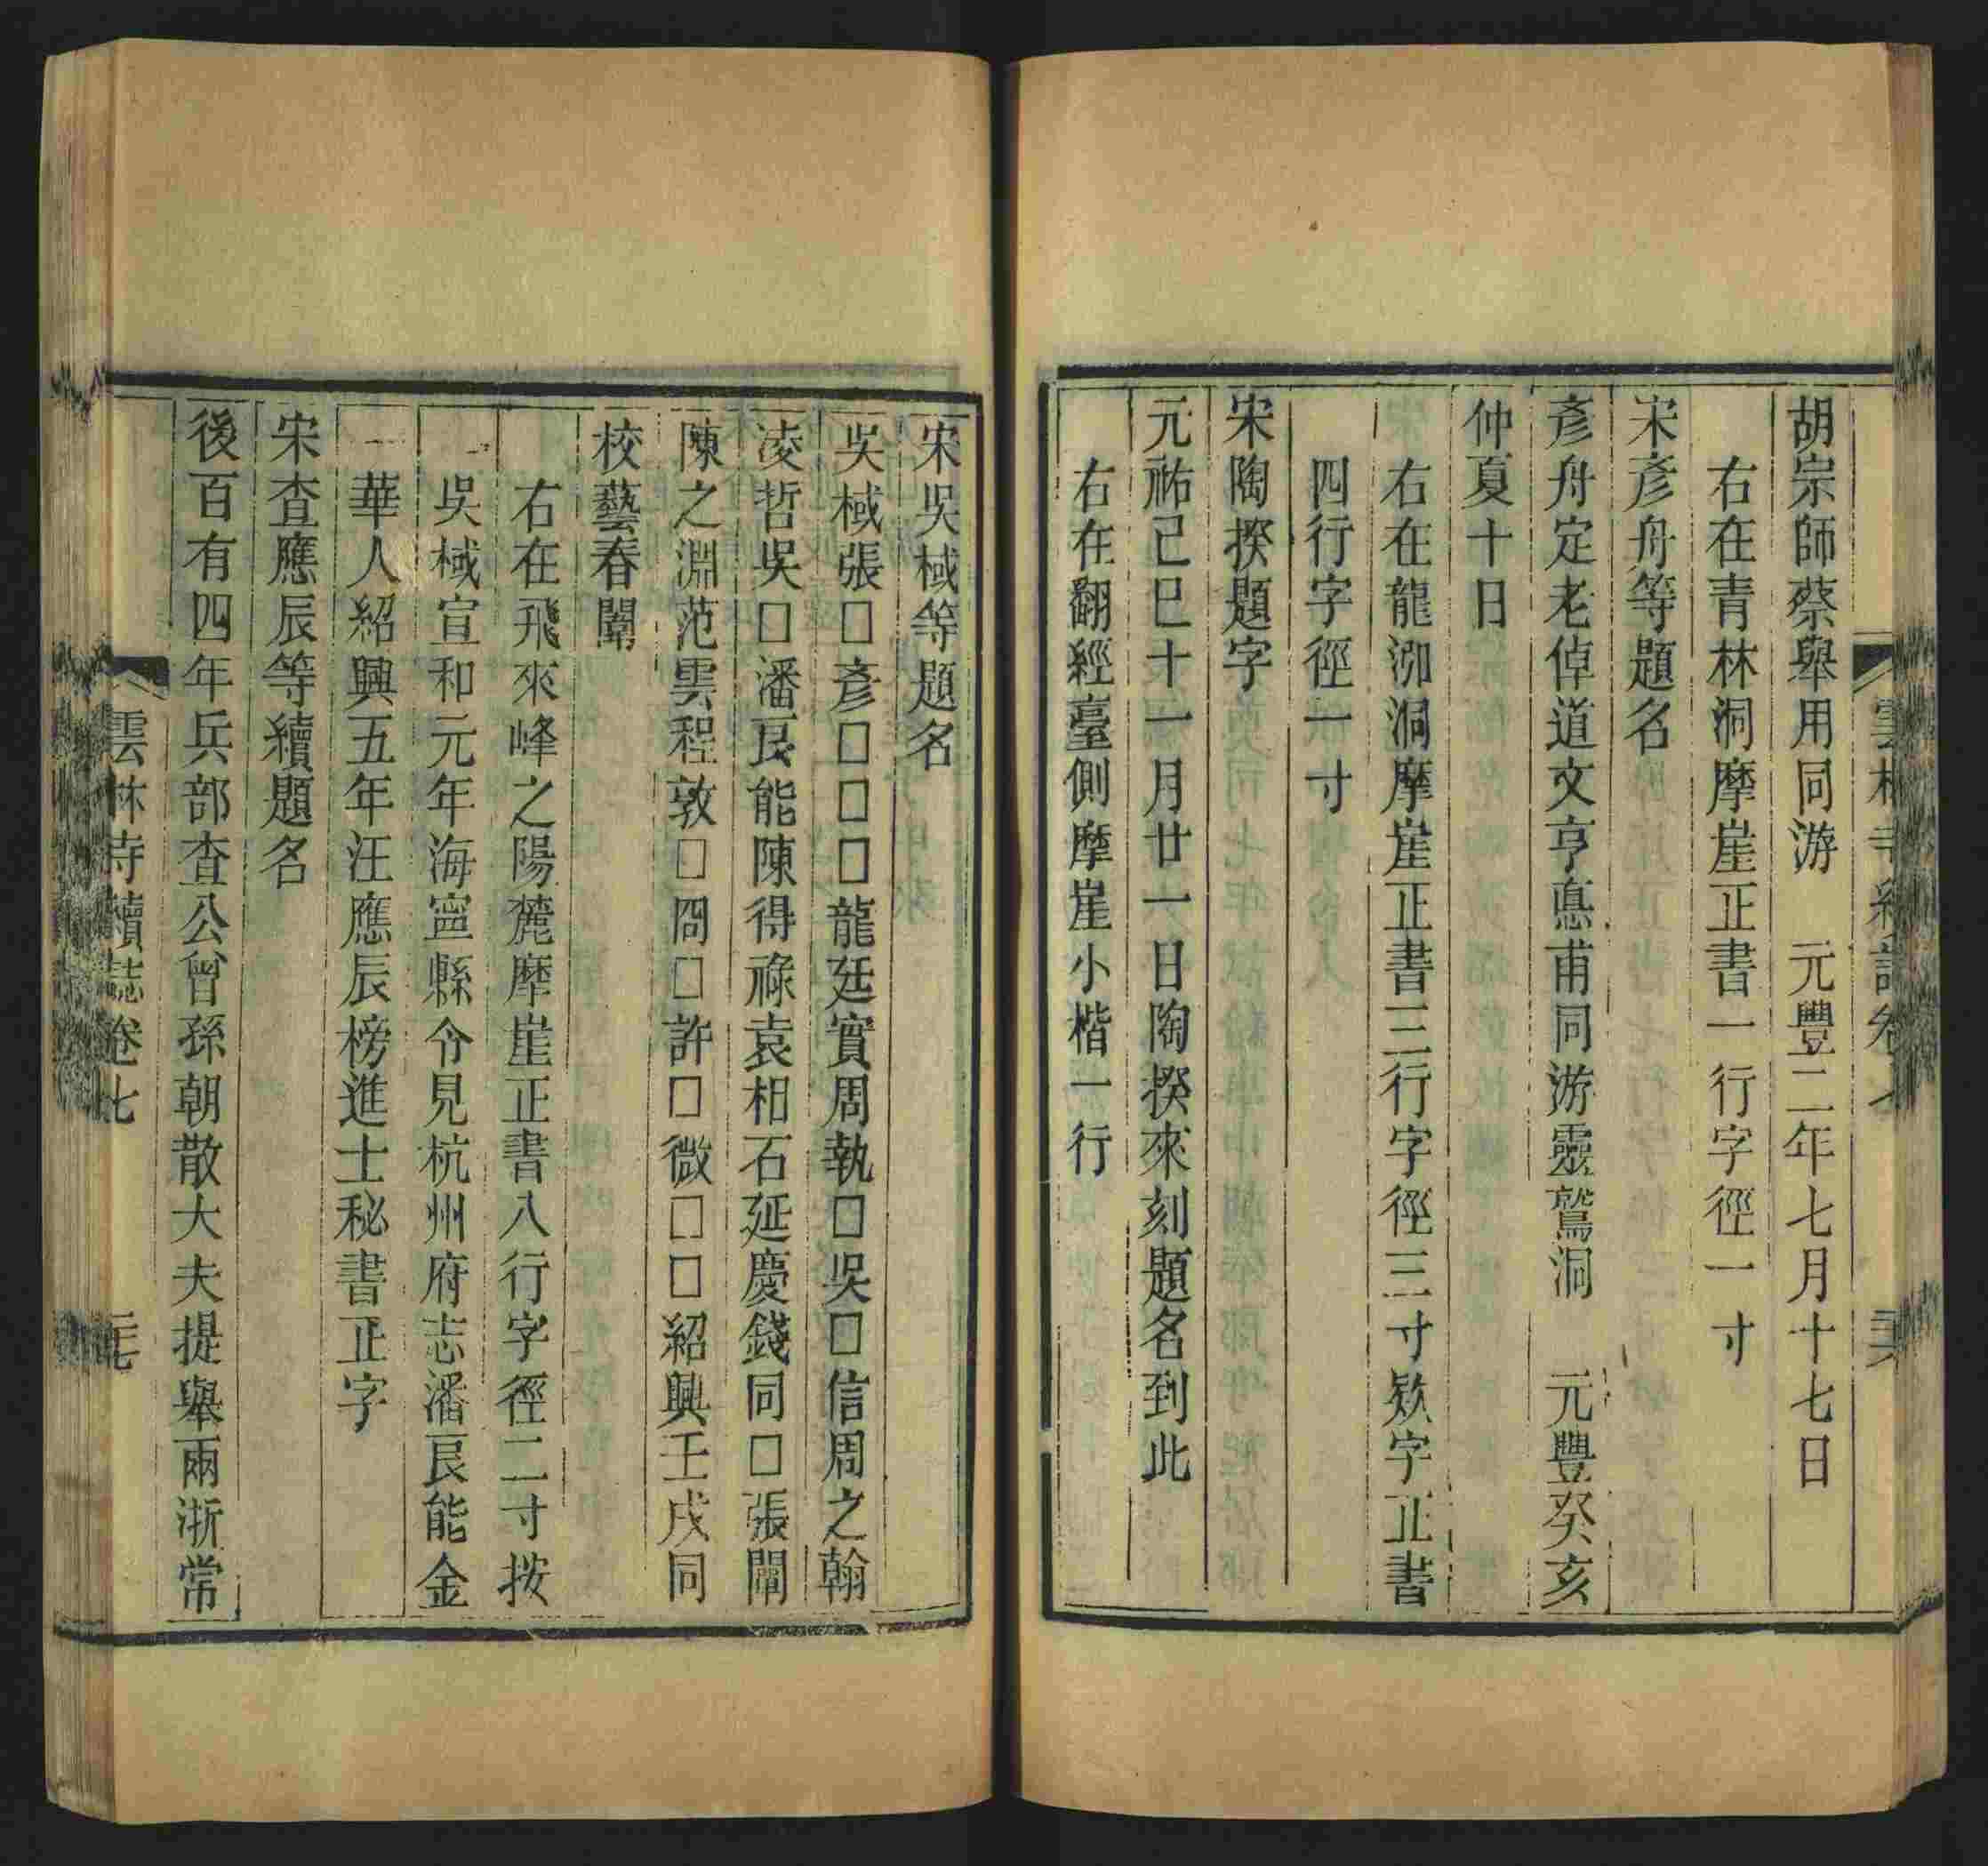 胡宗師蔡舉用同游　元豐二年七月十七日
右在青林洞摩崖正書一行字徑一寸
宋彥舟等題名
彥舟定老倬道文亨惪甫同游靈鷲洞　元豐癸亥
仲夏十日
右在龍泓洞摩崖正書三行字徑三寸欵字正書
四行字徑一寸
宋陶揆題字
元祐己巳十一月廿一日陶揆來刻題名到此
右在翻經臺側摩崖小楷一行
宋吳棫等題名
吳棫張□彥□□□龍廷實周執□吳□信周之翰
凌哲吳□潘良能陳得祿袁相石延慶錢同□張闡
陳之淵范雲程敦□岡□許□微□□紹興壬戌同
校藝春闈
右在飛來峰之陽麓摩崖正書八行字徑二寸按
吳棫宣和元年海寧縣令見杭州府志潘良能金
華人紹興五年汪應辰榜進士秘書正字
宋查應辰等續題名
後百有四年兵部查公曾孫朝散大夫提舉兩浙常
雲林寺續誌卷七